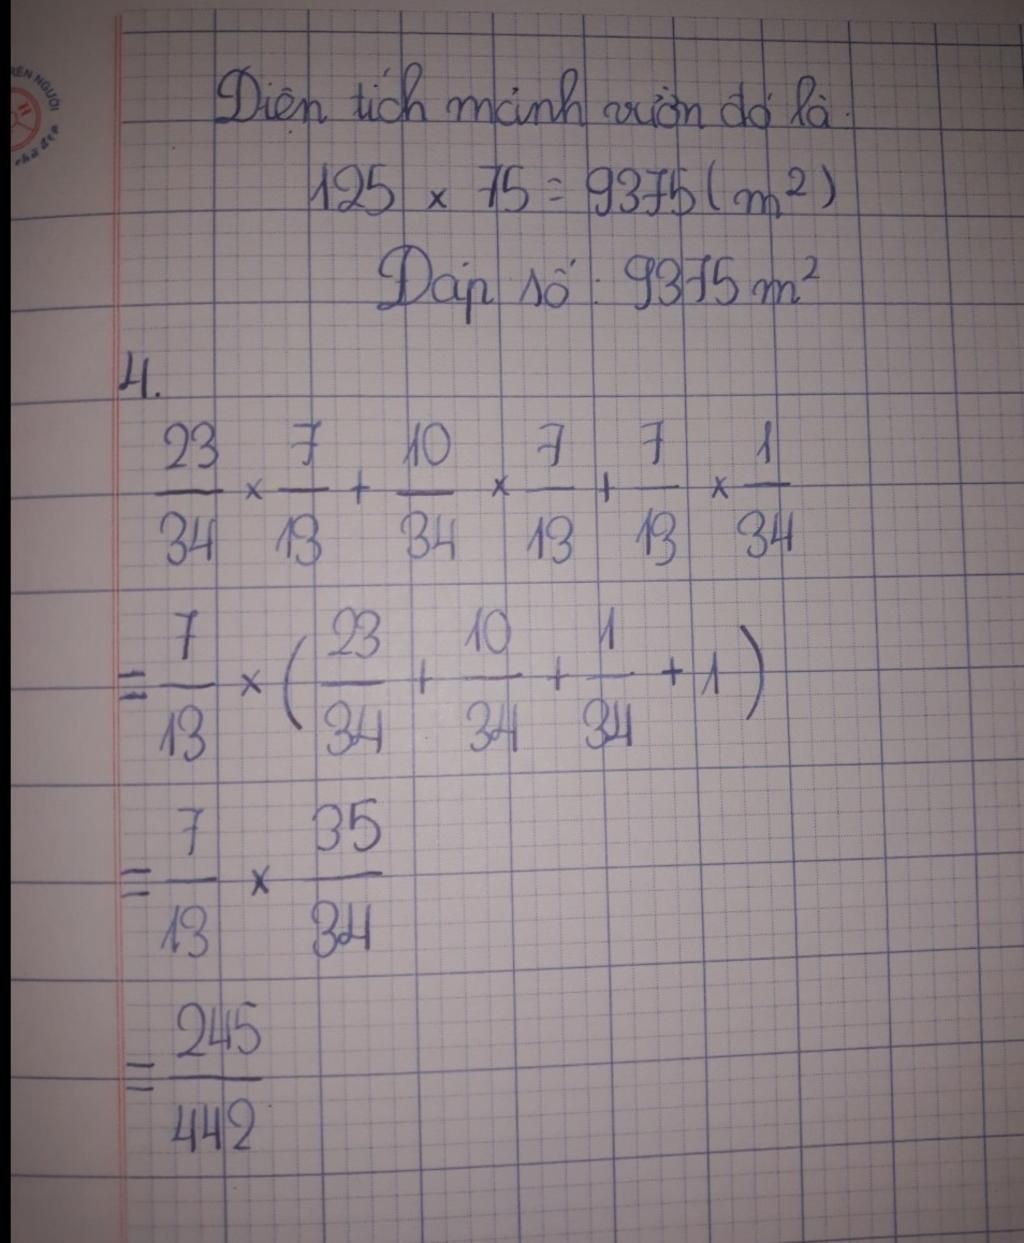 ÊN NGƯỜI
chữ đẹp
Diện tích mảnh vườn đó là
125 × 75 = 9375 (m²)
Đáp số : 9375 m²
4.
23/34 × 7/13 + 10/34 × 7/13 + 7/13 × 1/34
= 7/13 × (23/34 + 10/34 + 1/34 + 1)
= 7/13 × 35/34
= 245/442